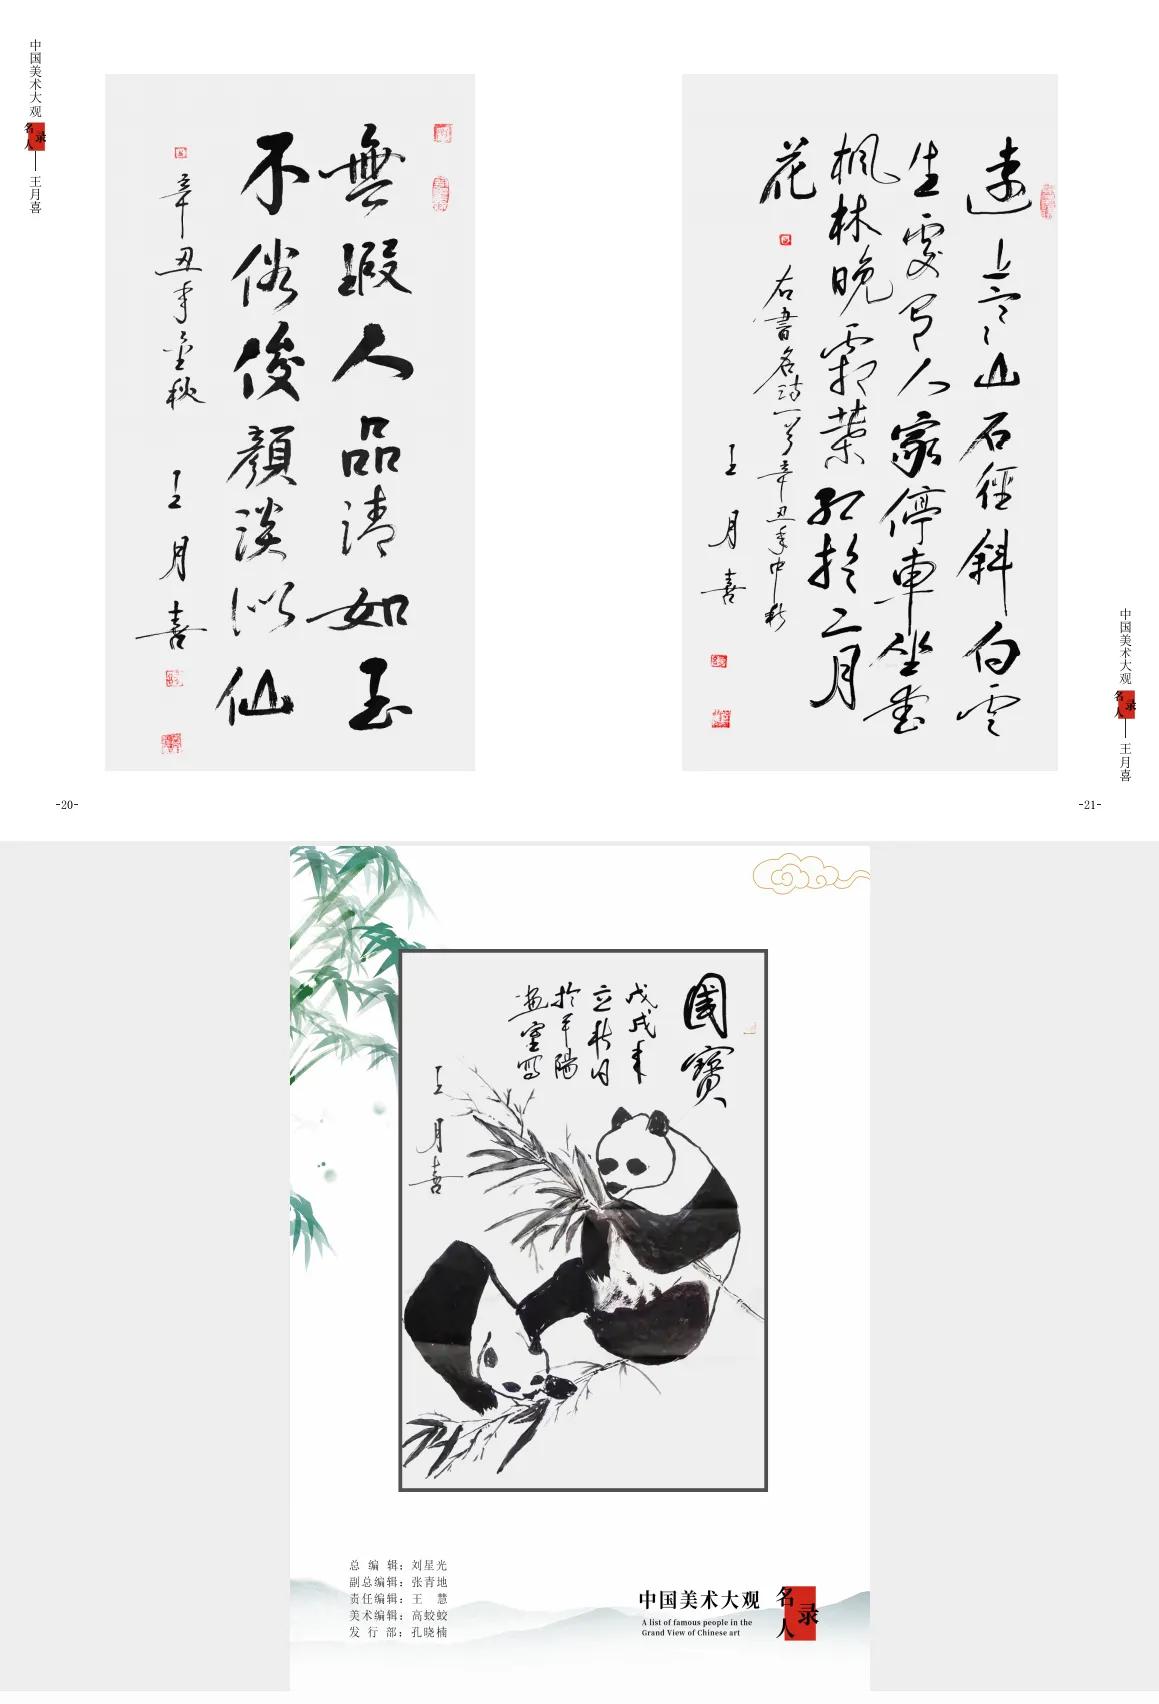 中国美术大观
名人录
王月喜
無瑕人品清如玉
不俗俊顏淡似仙
辛丑年金秋
王月喜
-20-
遠上寒山石徑斜白雲
生處有人家停車坐愛
楓林晚霜葉紅於二月
花
右書名詩一首辛丑年中秋
王月喜
中国美术大观
名人录
王月喜
-21-
國寶
戊戌年
立秋月
於平陽
畫室寫
王月喜
总编辑：刘星光
副总编辑：张青地
责任编辑：王慧
美术编辑：高蛟蛟
发行部：孔晓楠
中国美术大观
名人录
A list of famous people in the
Grand View of Chinese art